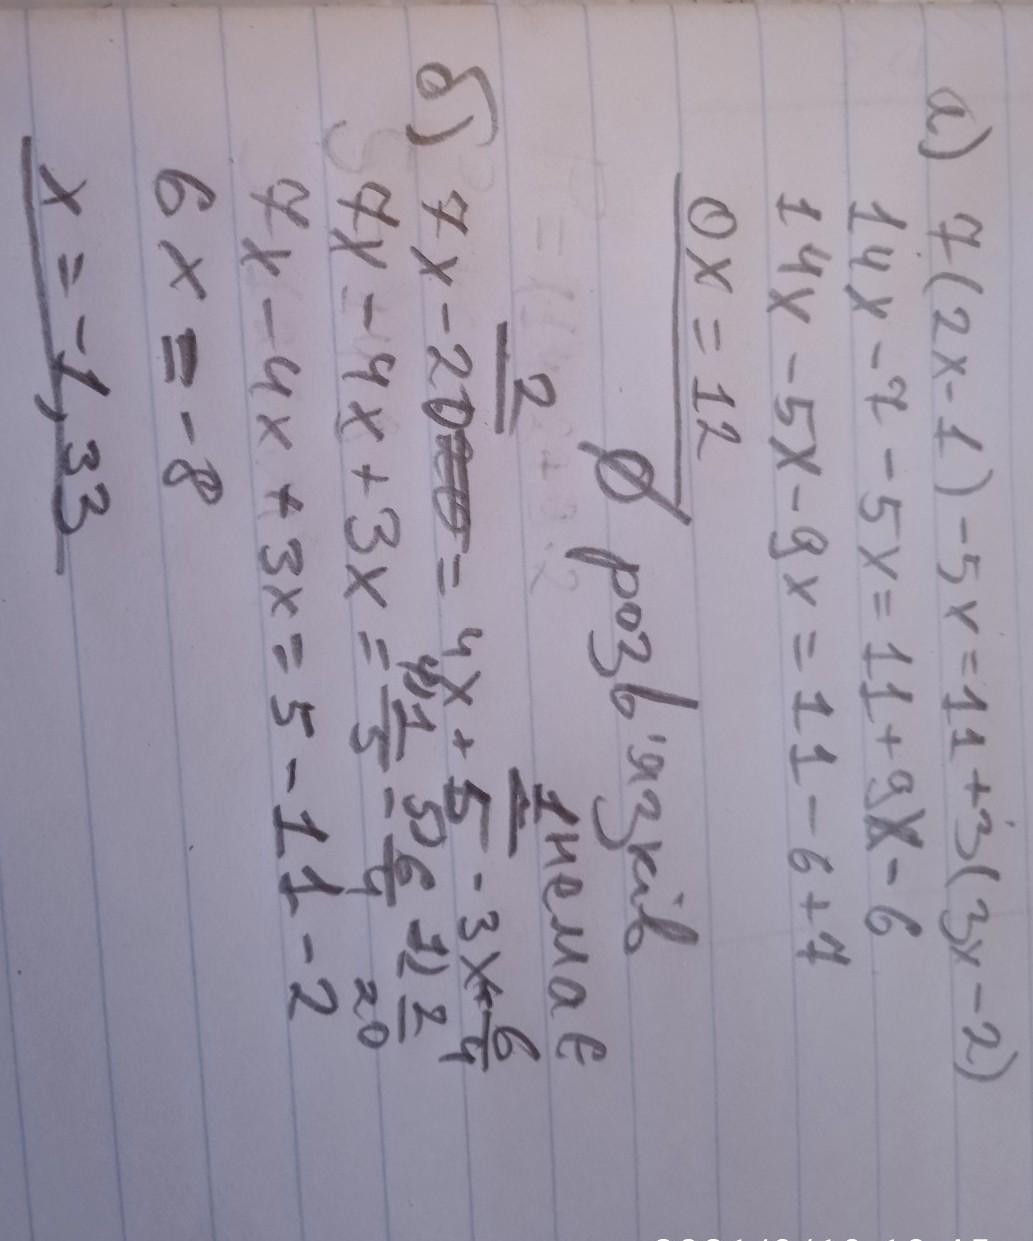 а) 7(2x-1)-5x=11+3(3x-2)
14x-7-5x=11+9x-6
14x-5x-9x=11-6+7
0x=12
∅ розв'язків
немає
б) 7x - 2/20 = 4x + 1/5 - 3x - 6/4
7x-4x+3x = 1/5 - 6/4 2/20
7x-4x+3x=5-11-2
6x=-8
x=-1,33